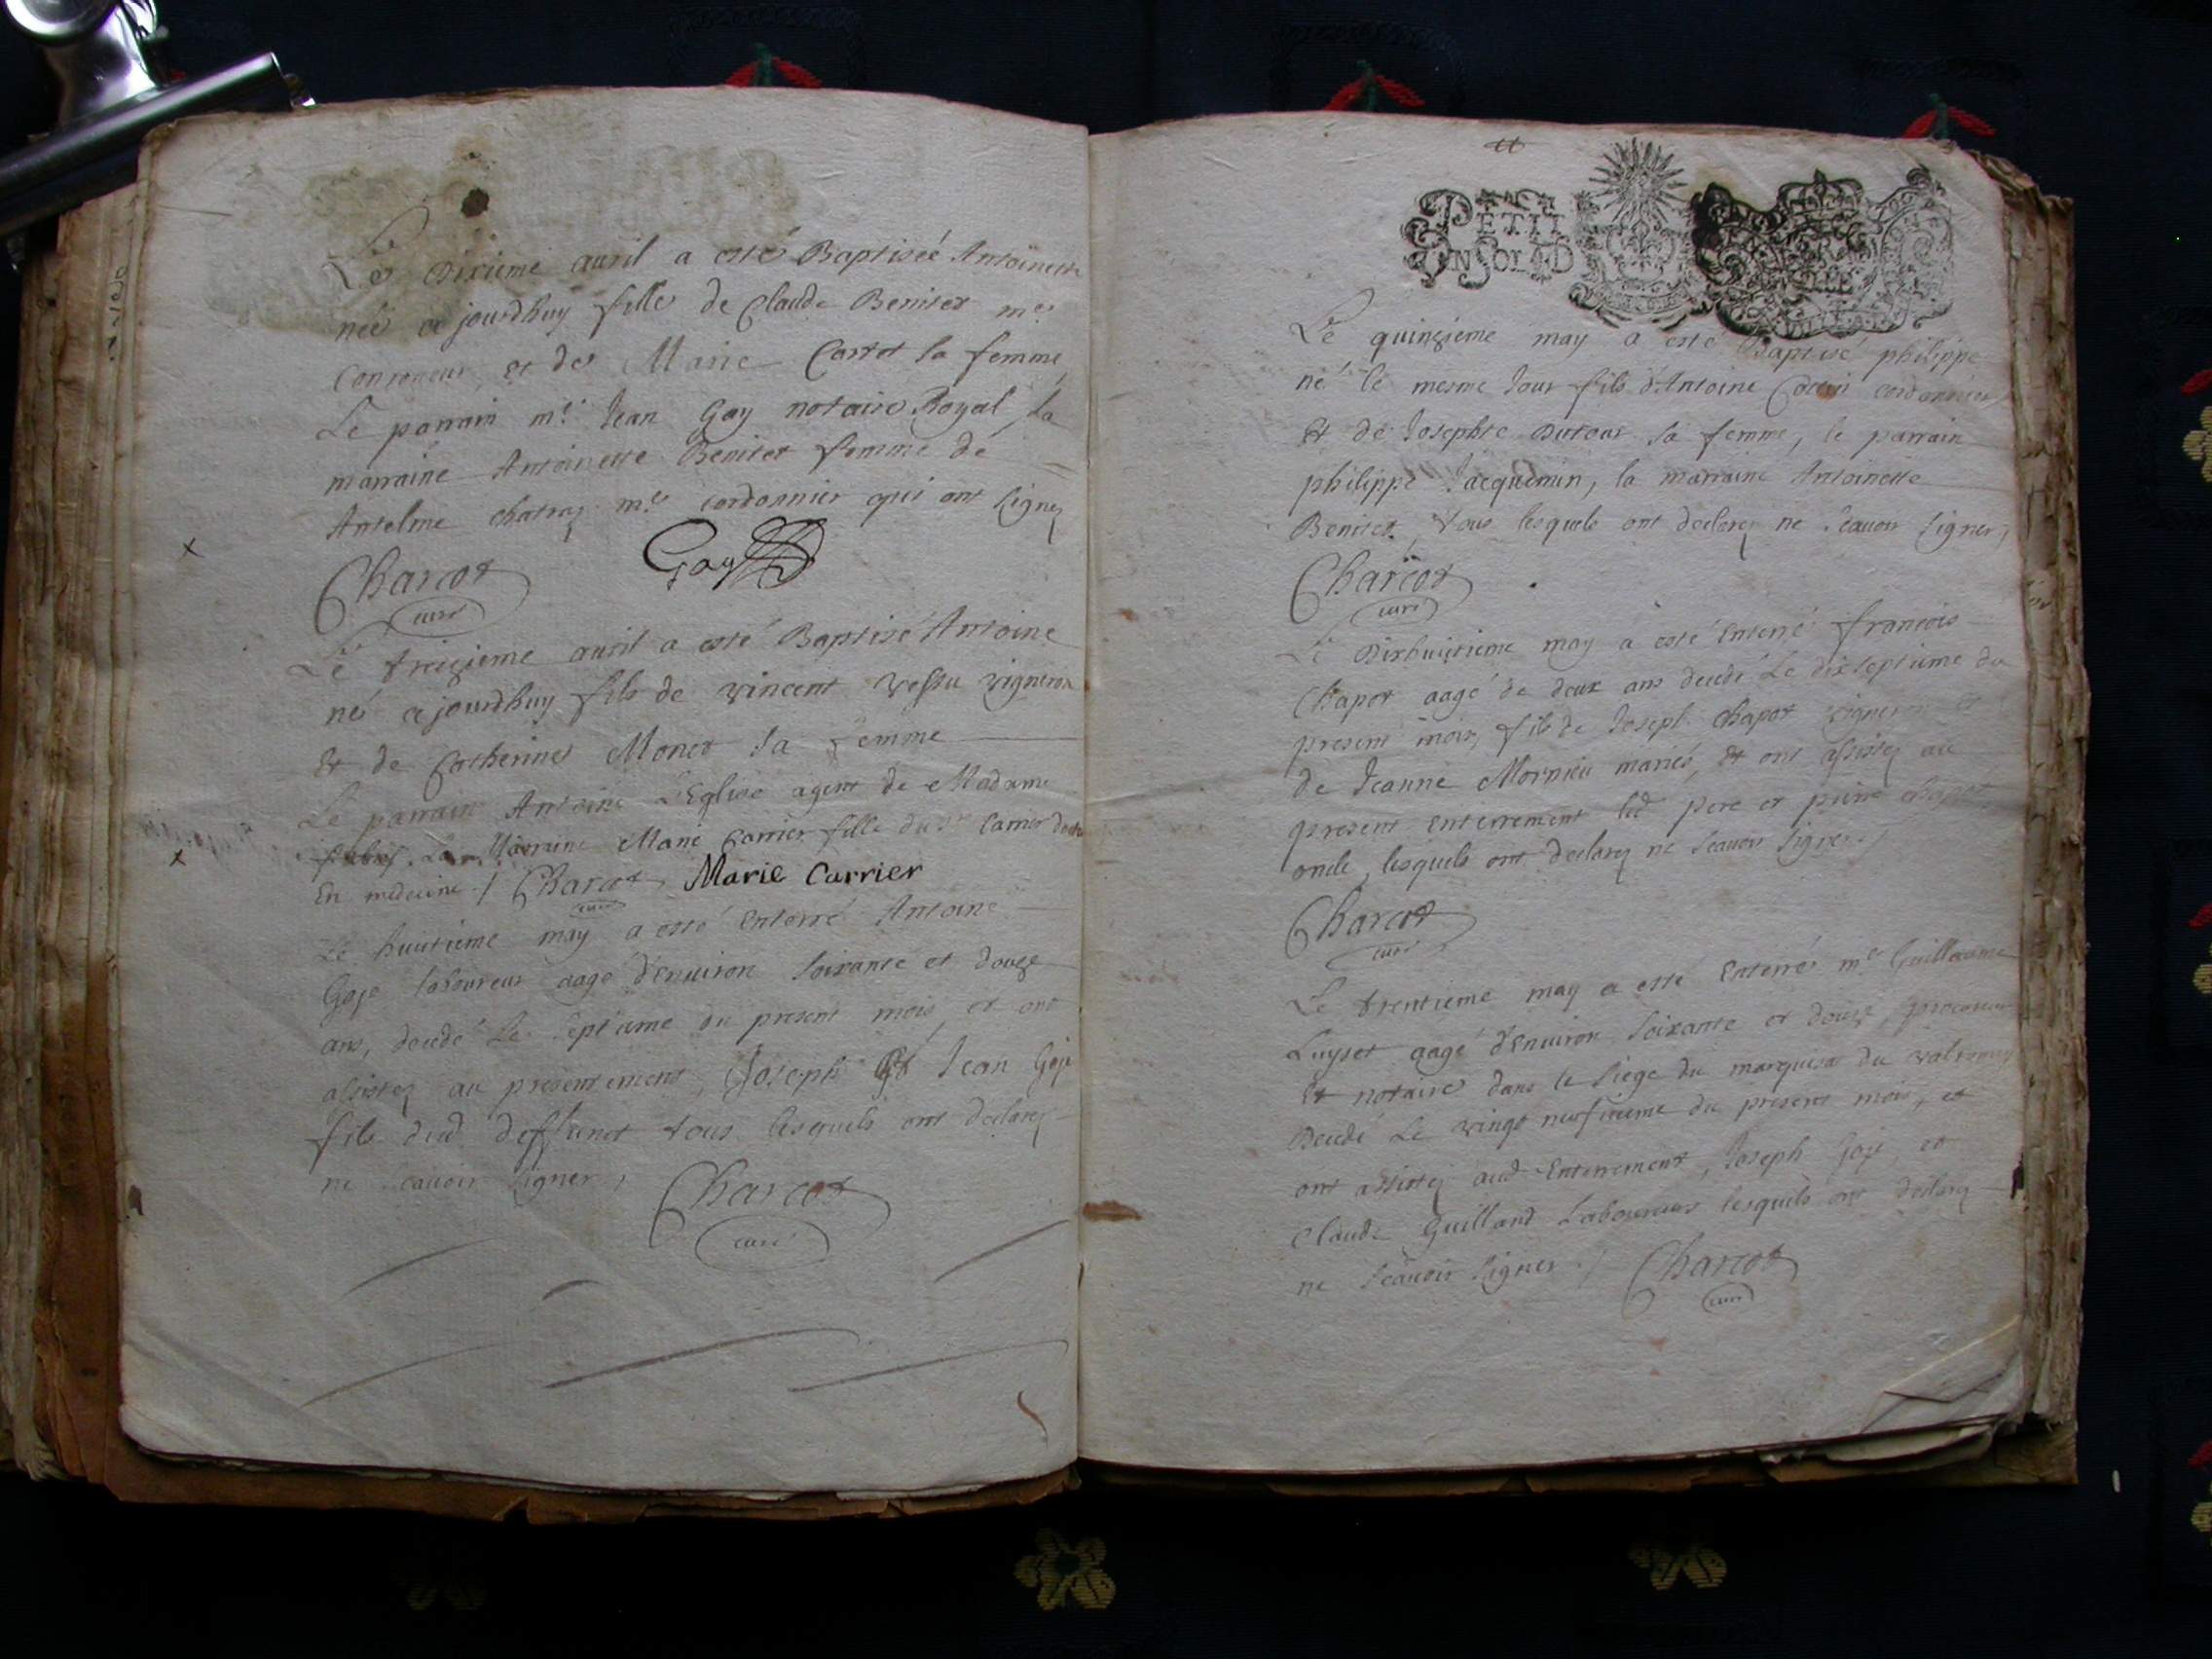 Le dixieme auril a esté Baptiseé Antoinette
néé ce jourdhuy fille de Claude Benitet me
et de Marie Corret sa femme
Le parrain me Jean Gay notaire Royal, La
marraine Antoinette Benitet femme de
Antelme me cordonnier qui ont signez
Charcot Gay
curé
Le treizieme auril a esté Baptisé Antoine
né ce jourdhuy fils de vincent vigneron
Et de Catherine Monet sa femme
Le parrain Antoine L'Eglise agent de Madame
La Marraine Marie Carrier fille du sr Carrier
En medecine / Charcot Marie Carrier
curé
Le huitieme may a esté Enterré Antoine
Goje laboureur aagé d'Enuiron soixante et douze
ans, decedé Le septieme du present mois, et ont
assistez au Joseph Et Jean Goje
fils dud deffunct tous lesquels ont declarez
ne scauoir signer,
Charcot
curé
PETIT
UN SOL 4 D
Le quinzieme may a esté Baptisé philippe
né le mesme Jour fils d'Antoine cordonnier
Et de Josephte Dutour sa femme, le parrain
philippe Jacquemin, la marraine Antoinette
Benitet, tous lesquels ont declarez ne scauoir signer,
Charcot
curé
Le Dixhuictieme may a esté Enterré francois
Chapot aagé de deux ans decedé Le dixseptieme du
present mois, fils de Joseph chapot vigneron et
de Jeanne Mornieu mariés, Et ont assistez au
present Enterrement led pere et pierre chapot
oncle, lesquels ont declarez ne scauoir signer. /
Charcot
curé
Le trentieme may a esté Enterré me Guillaume
Luyset aagé d'Enuiron soixante et douze, procureur
Et notaire dans le siege du marquisat du valromey
Decedé Le vingt neufuieme du present mois, et
ont assistez aud Enterrement, Joseph Goje, et
Claude Guilland Laboureurs lesquels ont declarez
ne scauoir signer / Charcot
curé